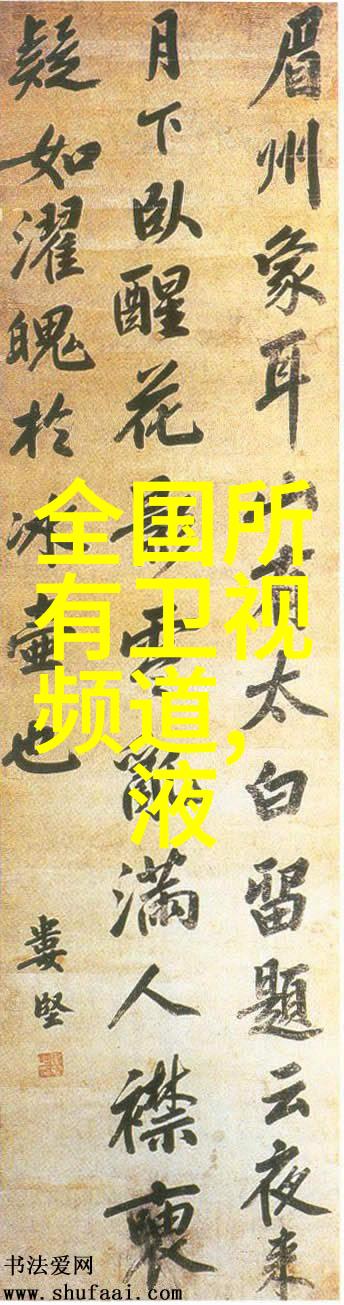 眉州象耳山有太白留題云夜来
月下臥醒花影雲亂滿人襟
疑如濯魄於冰壺也
婁堅
全国所
有卫视
频道,
液
书法爱网
www.shufaai.com